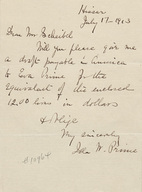 July 17 - 1913
Dear Mr
Will you please give me
a draft payable in America
to Eva Prime for the
equivalent of the enclosed
1200 lires in dollars
& oblige
My sincerely
John W. Prime